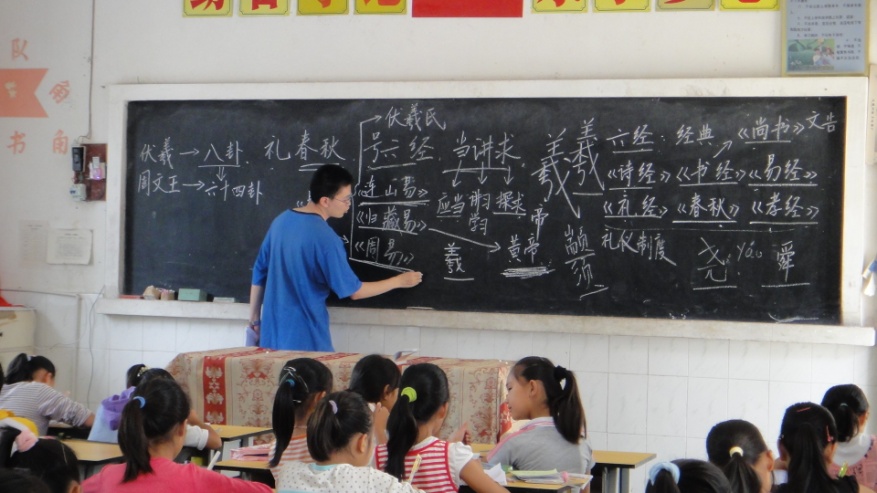 队
书 角
伏羲→八卦
周文王→六十四卦
礼 春秋
伏羲氏
号六经
《连山易》
《归藏易》
《周易》
当讲求
应当 讲习 探求
学习
羲
→黄帝
帝
羲羲
颛
须
六经:经典
《尚书》文告
《诗经》《书经》《易经》
《礼经》《春秋》《孝经》
礼仪制度
尧 yáo 舜